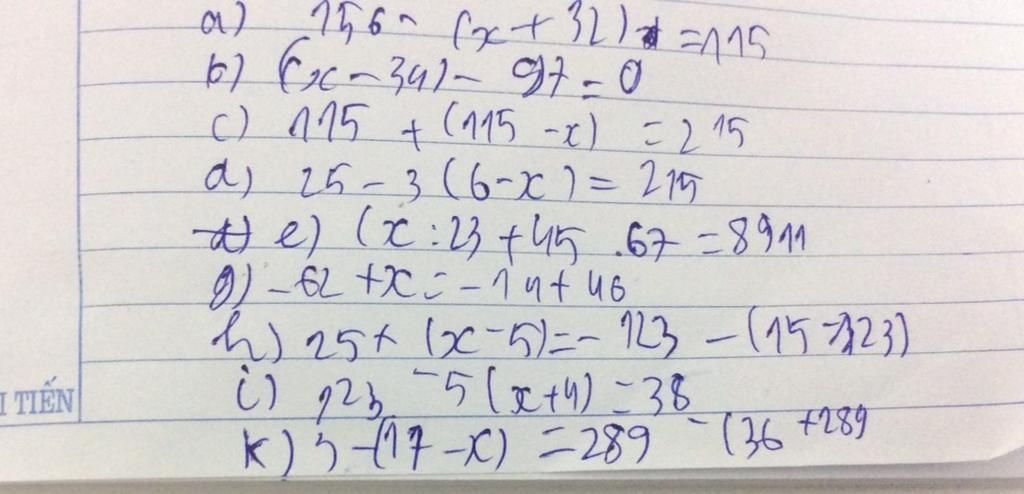 a) 156 - (x + 32) = 115
b) (x - 34) - 97 = 0
c) 115 + (115 - x) = 215
d) 25 - 3 (6 - x) = 215
e) (x : 23 + 45 . 67 = 8911
g) - 62 + x = - 14 + 46
h) 25 + (x - 5) = - 123 - (15 - 123)
I TIẾN i) 123 - 5 (x + 4) = 38
k) 3 - (17 - x) = 289 - (36 + 289